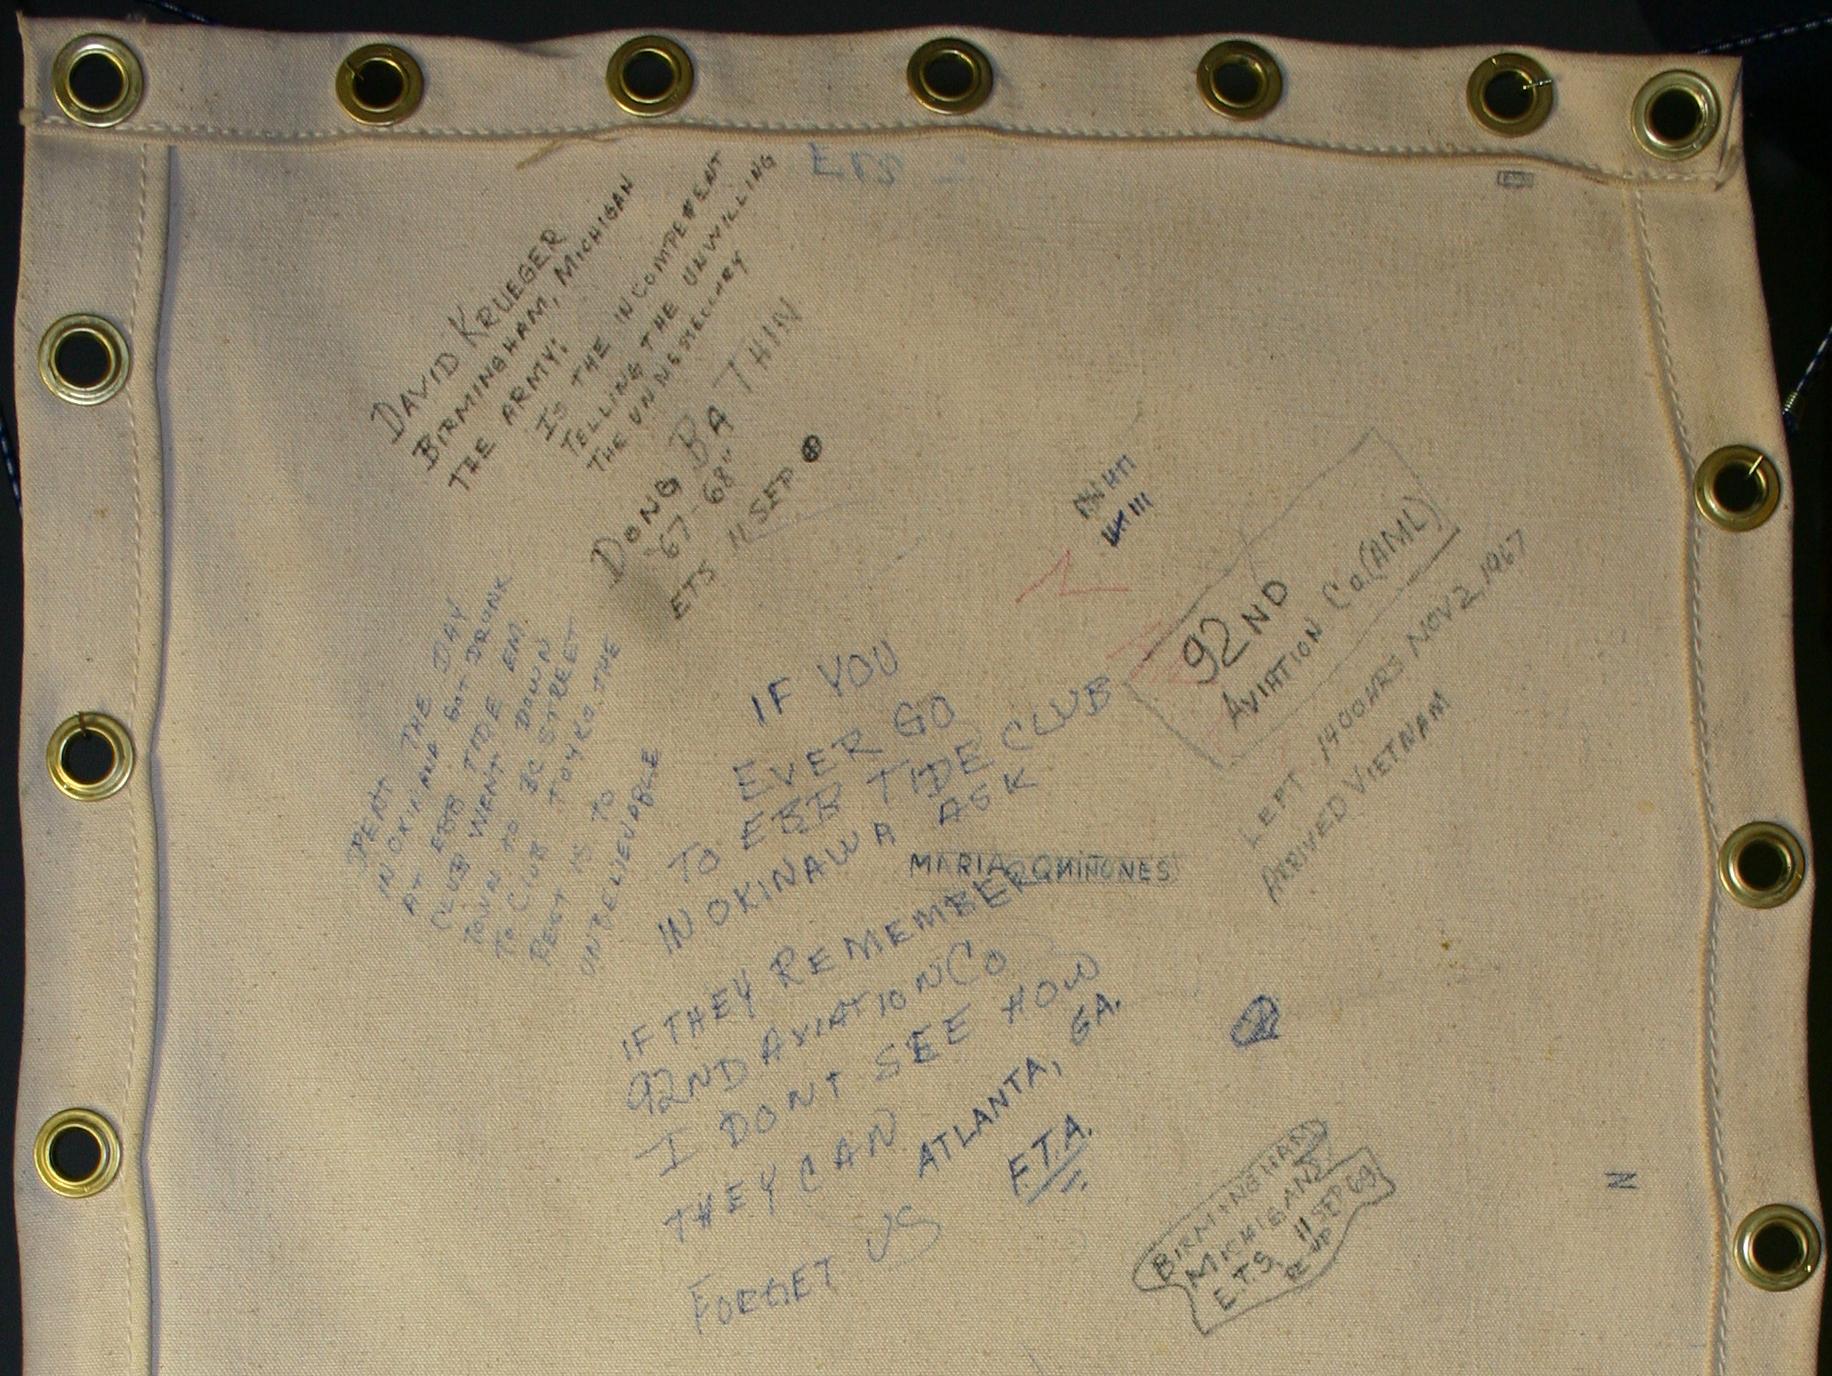 ETS
DAVID KRUEGER
BIRMINGHAM, MICHIGAN
THE ARMY:
IS THE INCOMPETENT
TELLING THE UNWILLING
THE UNNESSECCARY
DONG BA THIN
'67-68"
ETS 11 SEP
SPENT THE DAY
IN OKINAWA GOT DRUNK
AT EBB TIDE EM
CLUB WENT DOWN
TOWN TO BC STREET
TO CLUB TOYKO. THE
REST IS TO
UNBELIEVABLE
IF YOU
EVER GO
TO EBB TIDE CLUB
IN OKINAWA ASK
MARIA QUINONES
IF THEY REMEMBER
92ND AVIATION CO
I DONT SEE HOW
THEY CAN
FORGET US
ATLANTA, GA.
F.T.A.
92ND
AVIATION Co.(AML)
LEFT 1400HRS NOV 2, 1967
ARRIVED VIETNAM
BIRMINGHAM
MICHIGAN
E.T.S. 11 SEP 69
RE-UP
N